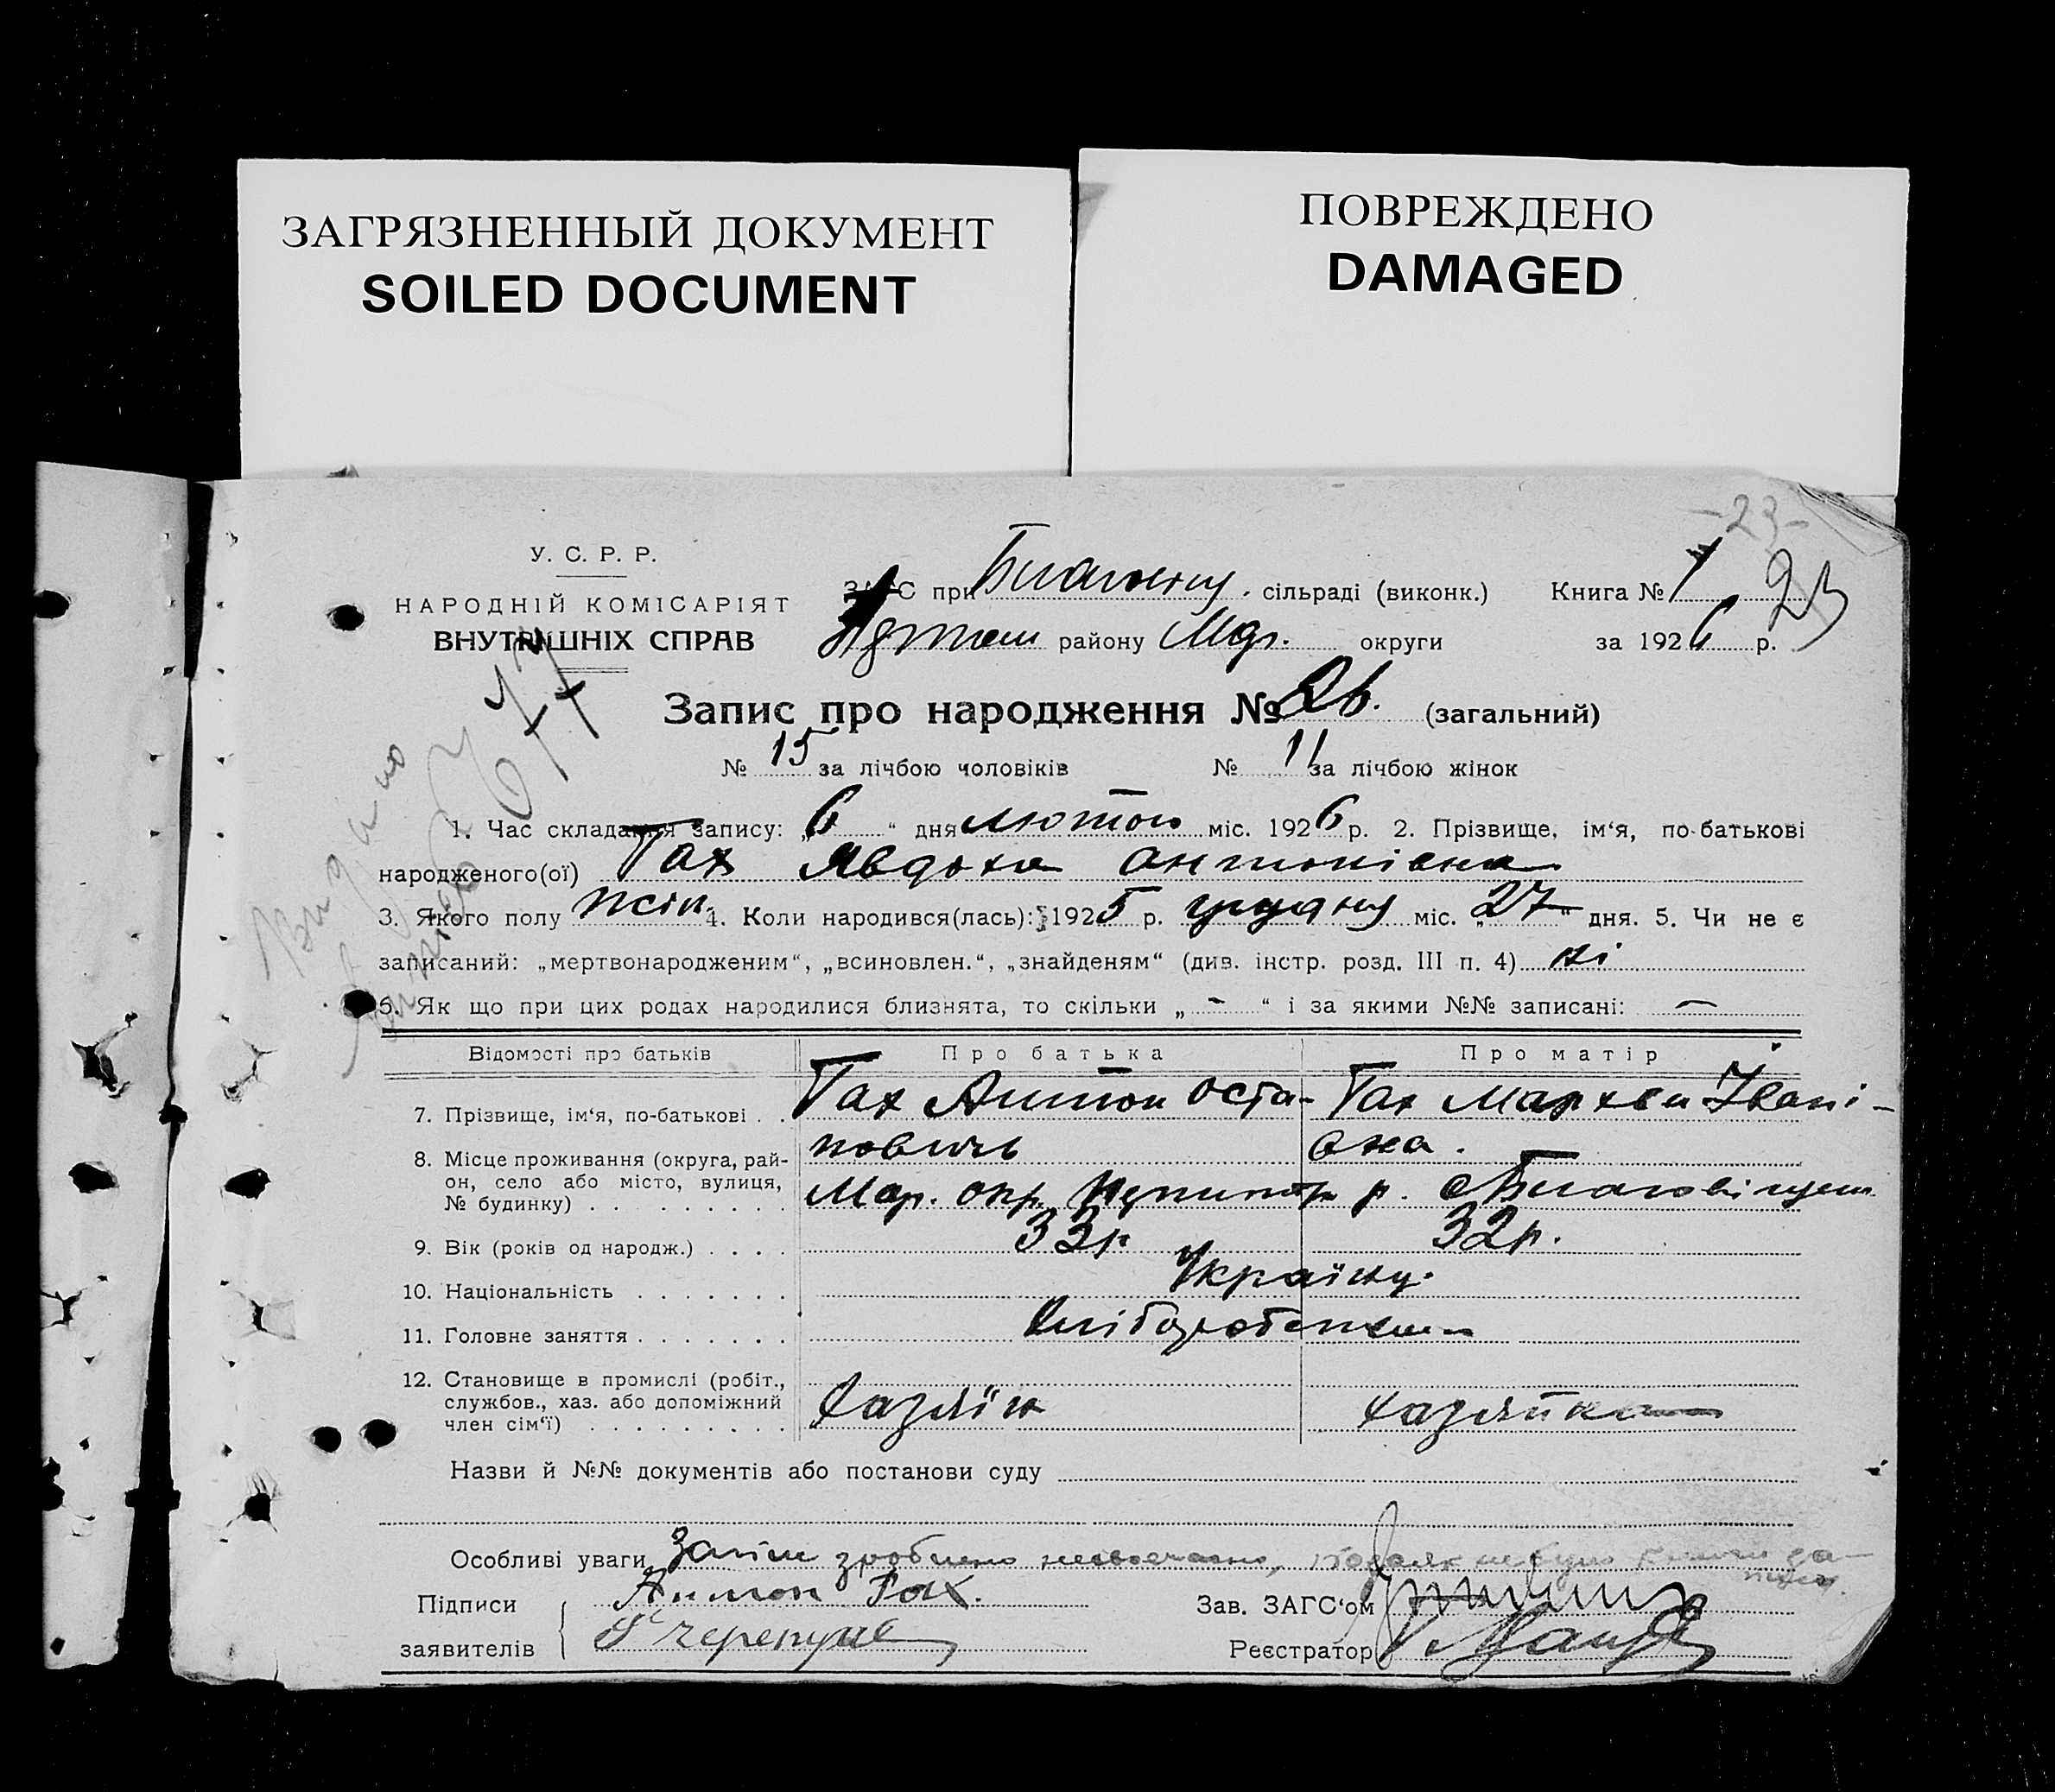 ЗАГРЯЗНЕННЫЙ ДОКУМЕНТ
SOILED DOCUMENT
ПОВРЕЖДЕНО
DAMAGED
-23-
У. С. Р. Р.
НАРОДНІЙ КОМІСАРІЯТ
ВНУТРІШНІХ СПРАВ
ЗАГС при сільраді (виконк.) Книга № 1 23
району Мар. округи за 1926 р.
Запис про народження № 26. (загальний)
№ 15 за лічбою чоловіків № 11 за лічбою жінок
1. Час складання запису: „6“ дня лютого міс. 1926 р. 2. Прізвище, ім‘я, по-батькові
народженого(ої) Гах Явдоха Антонівна
3. Якого полу жін. 4. Коли народився(лась): 1925 р. грудня міс. „27“ дня. 5. Чи не є
записаний: „мертвонародженим“, „всиновлен.“, „знайденям“ (див. інстр. розд. III п. 4) ні
6. Як що при цих родах народилися близнята, то скільки „ - “ і за якими №№ записані: —
Видано
Відомості про батьків Про батька Про матір
7. Прізвище, ім‘я, по-батькові . . Гах Антон Оста- Гах Мархва Івані-
повичь вна.
8. Місце проживання (округа, рай-
он, село або місто, вулиця,
№ будинку) . . . . . . . . . Мар. окр. р.
9. Вік (років од народж.) . . . . 33р. 32р.
10. Національність . . . . . . . Україну.
11. Головне заняття . . . . . . .
12. Становище в промислі (робіт.,
службов., хаз. або допоміжний
член сім‘ї) . . . . . . . . . Хазяїн хазяйка
Назви й №№ документів або постанови суду
Особливі уваги Запис зроблено несвоечасно,
Підписи Антон Гах. Зав. ЗАГС‘ом
заявителів Реєстратор